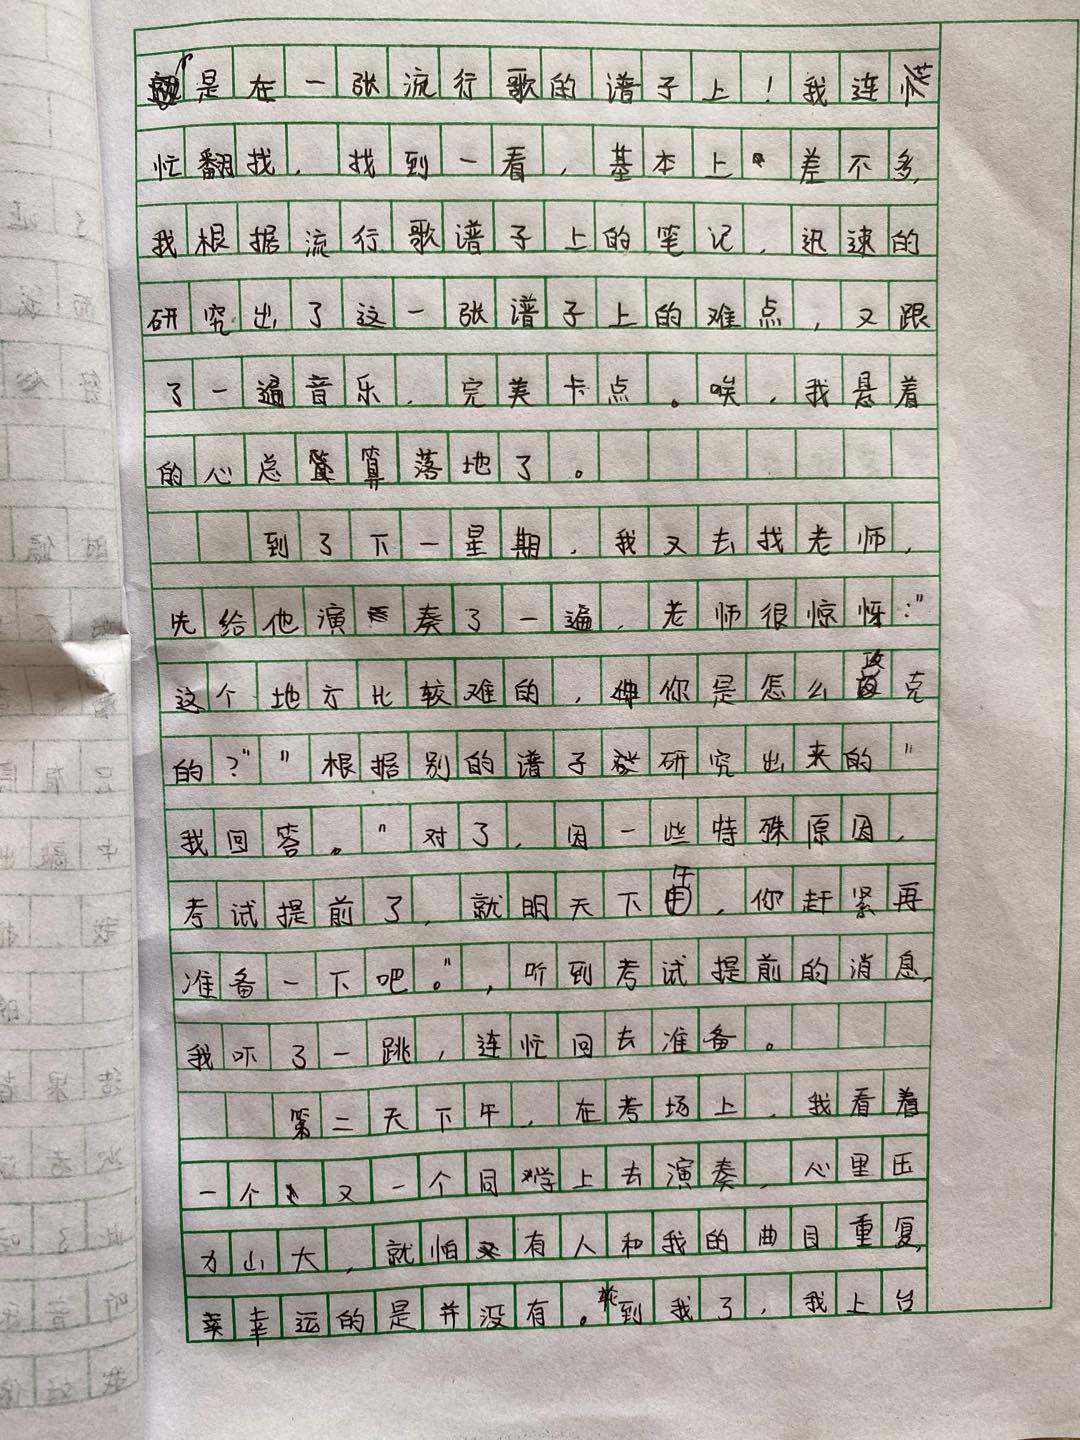 是在一张流行歌的谱子上！我连
忙翻找，找到一看，基本上差不多，
我根据流行歌谱子上的笔记，迅速的
研究出了这一张谱子上的难点，又跟
了一遍音乐，完美卡点。唉，我悬着
的心总算落地了。
到了下一星期，我又去找老师，
先给他演奏了一遍，老师很惊怪："
这个地方比较难的，你是怎么攻克
的？""根据别的谱子研究出来的"
我回答。"对了，因一些特殊原因，
考试提前了，就明天下午，你赶紧再
准备一下吧。"，听到考试提前的消息，
我吓了一跳，连忙回去准备。
第二天下午，在考场上，我看着
一个又一个同学上去演奏，心里压
力山大，就怕有人和我的曲目重复，
幸运的是并没有。轮到我了，我上台